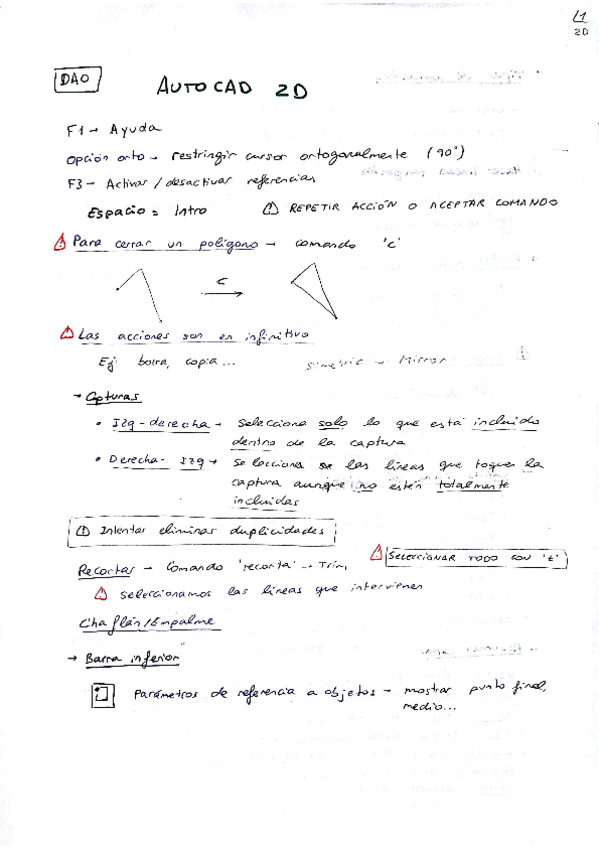 L1
2D
DAO
AUTOCAD 2D
F1 → Ayuda
Opción orto → restringir cursor ortogonalmente (90°)
F3 → Activar/desactivar referencias
Espacio = Intro ⚠ REPETIR ACCIÓN O ACEPTAR COMANDO
⚠ Para cerrar un polígono → comando 'c'
C
⚠ Las acciones son en infinitivo
Ej borra, copia... Simetric → Mirror
→ Capturas
• Izq-derecha → Selecciona solo lo que está incluido
dentro de la captura
• Derecha-Izq → Selecciona las líneas que toquen la
captura aunque no estén totalmente
incluidas
⚠ Intentar eliminar duplicidades
Recortar → Comando 'recorta' → Trim
⚠ SELECCIONAR TODO CON 't'
⚠ Seleccionamos las líneas que intervienen
Chaflán/Empalme
→ Barra inferior
Parámetros de referencia a objetos → mostrar punto final,
medio...